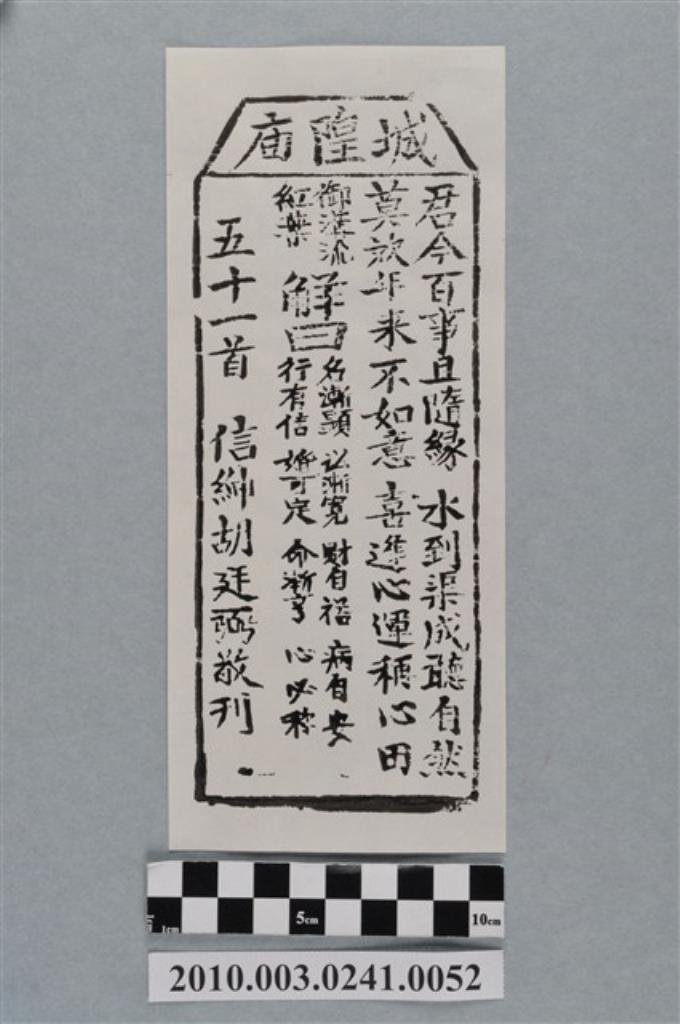 城隍庙
君今百事且隨緣 水到渠成聽自然
莫欢年来不如意 喜逢心運稱心田
御溝流
紅葉
解曰
名漸顯 訟漸寬 財自裕 病自安
行有信 婚可定 命漸亨 心必称
五十一首 信紳胡廷弼敬刊
5cm
10cm
1cm
2010.003.0241.0052